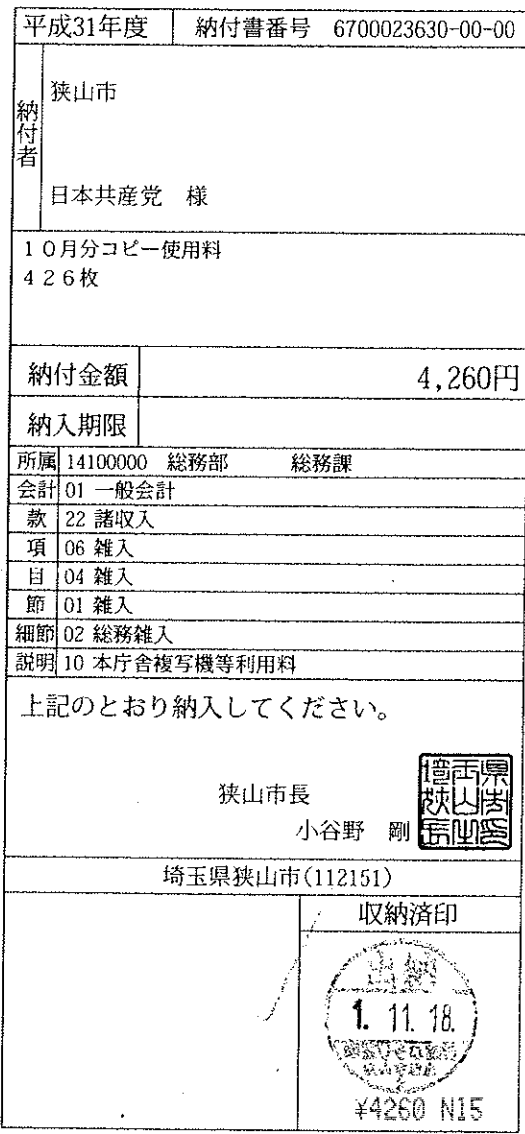 平成31年度 納付書番号 6700023630-00-00
納付者
狭山市
日本共産党 様
10月分コピー使用料
426枚
納付金額 4,260円
納入期限
所属 14100000 総務部 総務課
会計 01 一般会計
款 22 諸収入
項 06 雑入
目 04 雑入
節 01 雑入
細節 02 総務雑入
説明 10 本庁舎複写機等利用料
上記のとおり納入してください。
狭山市長
小谷野 剛
埼玉県狭山市(112151)
収納済印
出納
1. 11. 18.
¥4260 N15